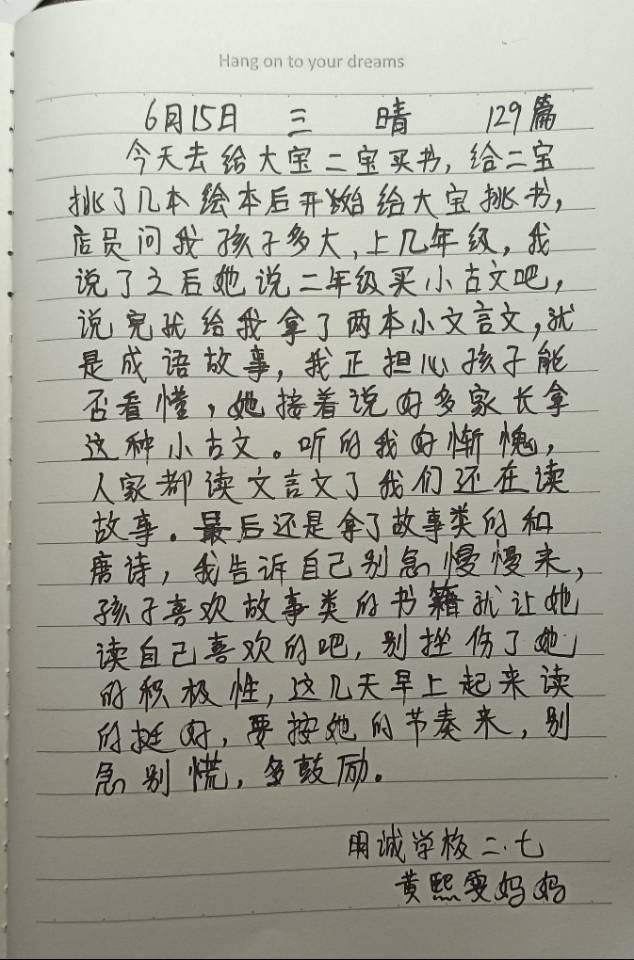 Hang on to your dreams
6月15日 三 晴 129篇
今天去给大宝二宝买书,给二宝
挑了几本绘本后开始给大宝挑书,
店员问我孩子多大,上几年级,我
说了之后她说二年级买小古文吧,
说完就给我拿了两本小文言文,就
是成语故事,我正担心孩子能
否看懂,她接着说好多家长拿
这种小古文。听的我好惭愧,
人家都读文言文了我们还在读
故事。最后还是拿了故事类的和
唐诗,我告诉自己别急慢慢来,
孩子喜欢故事类的书籍就让她
读自己喜欢的吧,别挫伤了她
的积极性,这几天早上起来读
的挺好,要按她的节奏来,别
急别慌,多鼓励。
明诚学校二.七
黄熙雯妈妈